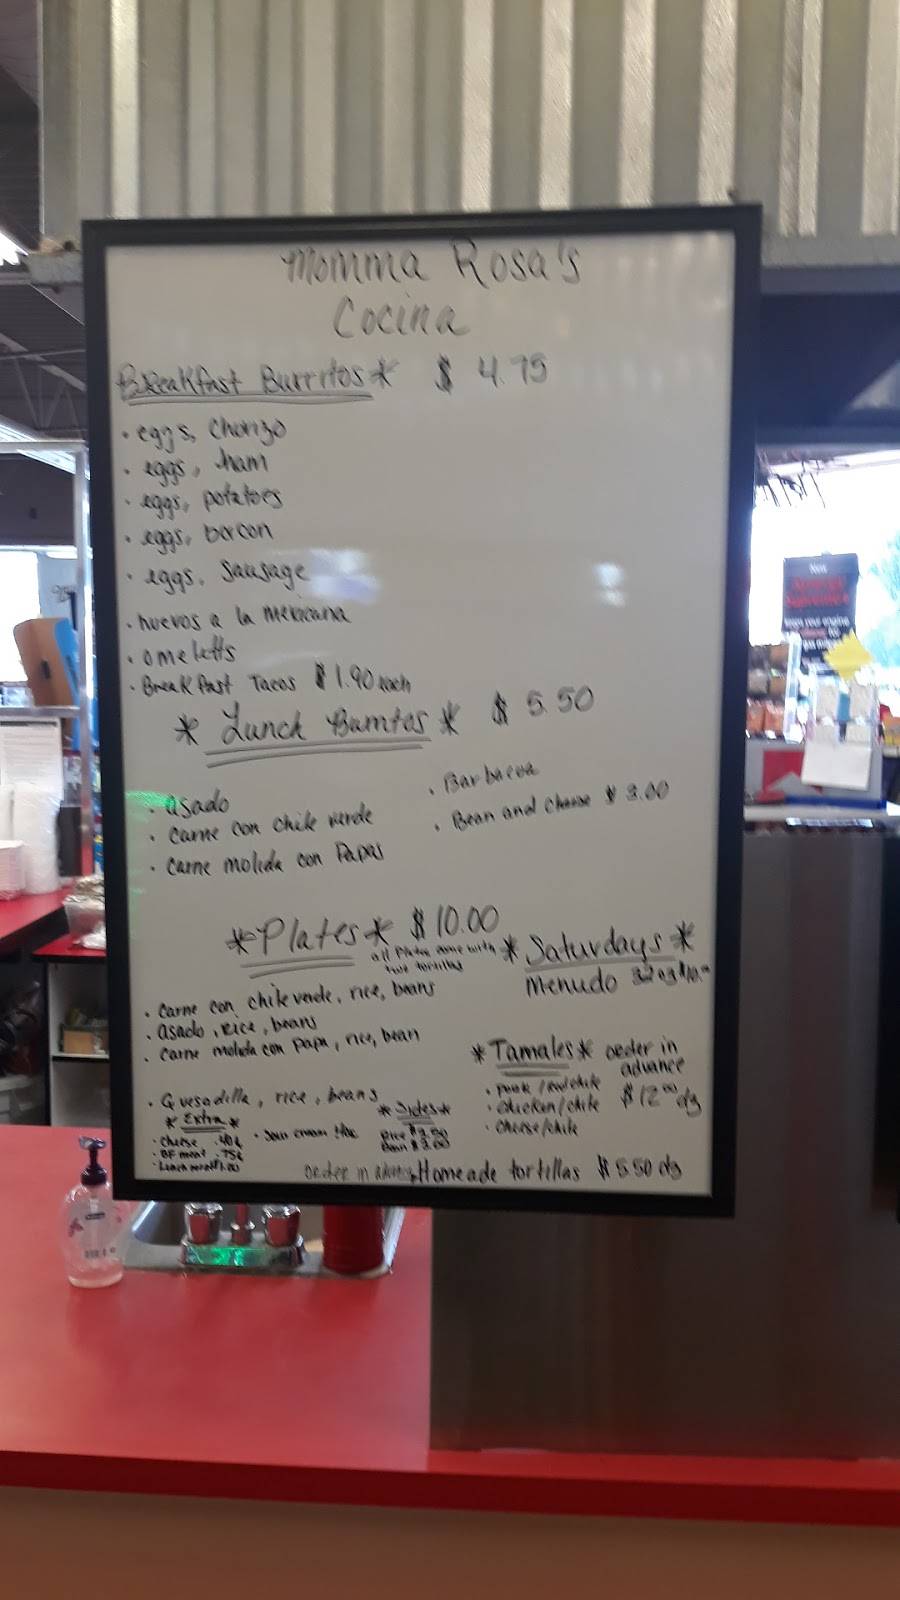 Momma Rosa's
Cocina
Breakfast Burritos* $ 4.75
• eggs, Chorizo
• eggs, ham
• eggs, potatoes
• eggs, bacon
• eggs, sausage
• huevos a la mexicana
• omeletts
• Breakfast Tacos $1.90 each
* Lunch Burritos * $ 5.50
• asado
• Carne con chile verde
• Carne molida con Papas
• Barbacoa
• Bean and cheese $ 3.00
*Plates* $10.00
all Plates come with
two tortillas
• Carne con chile verde, rice, beans
• asado, Rice, beans
• Carne molida con papa, rice, bean
• Quesadilla, rice, beans
* Saturdays *
Menudo 32 oz $10.00
*Tamales* order in
advance
• Pork / Red chile $12.00 dz
• Chicken / chile
• Cheese / chile
* Extra *
• Cheese .40¢
• BF meat .75¢
• Lunch meat $1.00
• Sour cream
*Sides*
Rice
Bean
order in advance, Homeade tortillas $5.50 dz